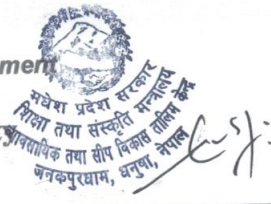 ment
मधेश प्रदेश सरकार
शिक्षा तथा संस्कृति मन्त्रालय
व्यावसायिक तथा सीप विकास तालिम केन्द्र
जनकपुरधाम, धनुषा, नेपाल